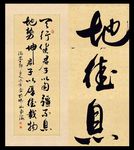 地德息
天行健君子以自強不息
地勢坤君子以厚德載物